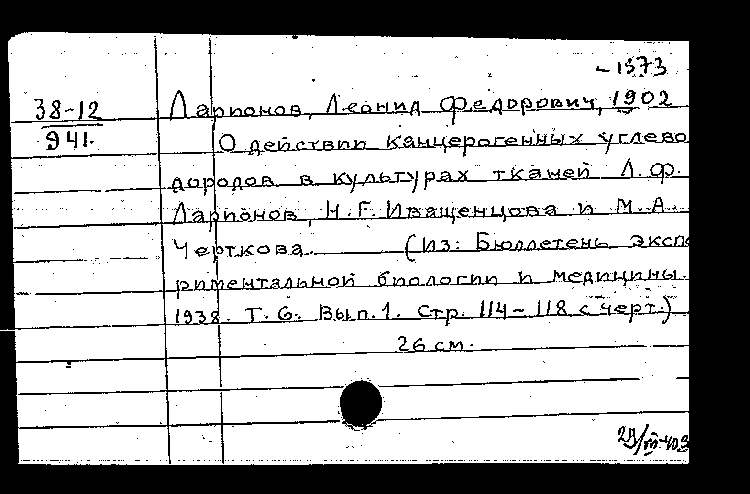 -1373
38-12
941.
Ларионов, Леонид Федорович, 1902
О действии канцерогенных углево
дородов в культурах тканей Л.Ф.
Ларионов, Н.Г. Иващенцова и М.А.
Черткова. (Из: Бюллетень экспе
риментальной биологии и медицины.
1938. Т. 6. Вып. 1. Стр. 114-118 с черт.)
26 см.